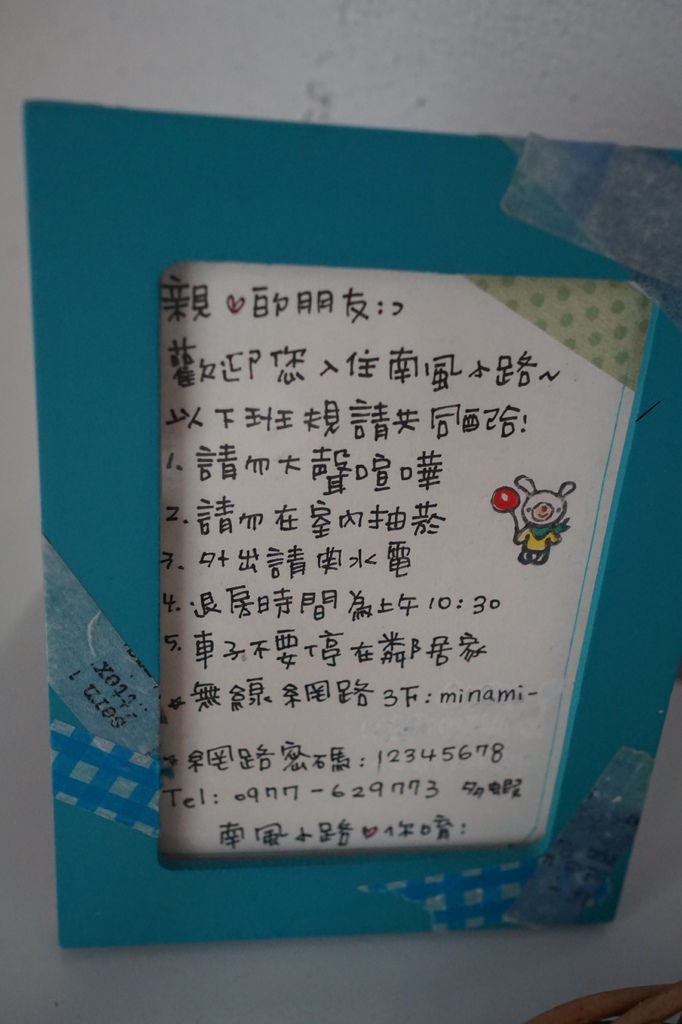 親♡的朋友:⊃
歡迎您入住南風小路~
以下班規請共同配合!
1. 請勿大聲喧嘩
2. 請勿在室內抽菸
3. 外出請關水電
4. 退房時間為上午10:30
5. 車子不要停在鄰居家
☆無線網路3F: minami-
☆網路密碼: 12345678
Tel: 0977-629773
南風小路♡你唷: